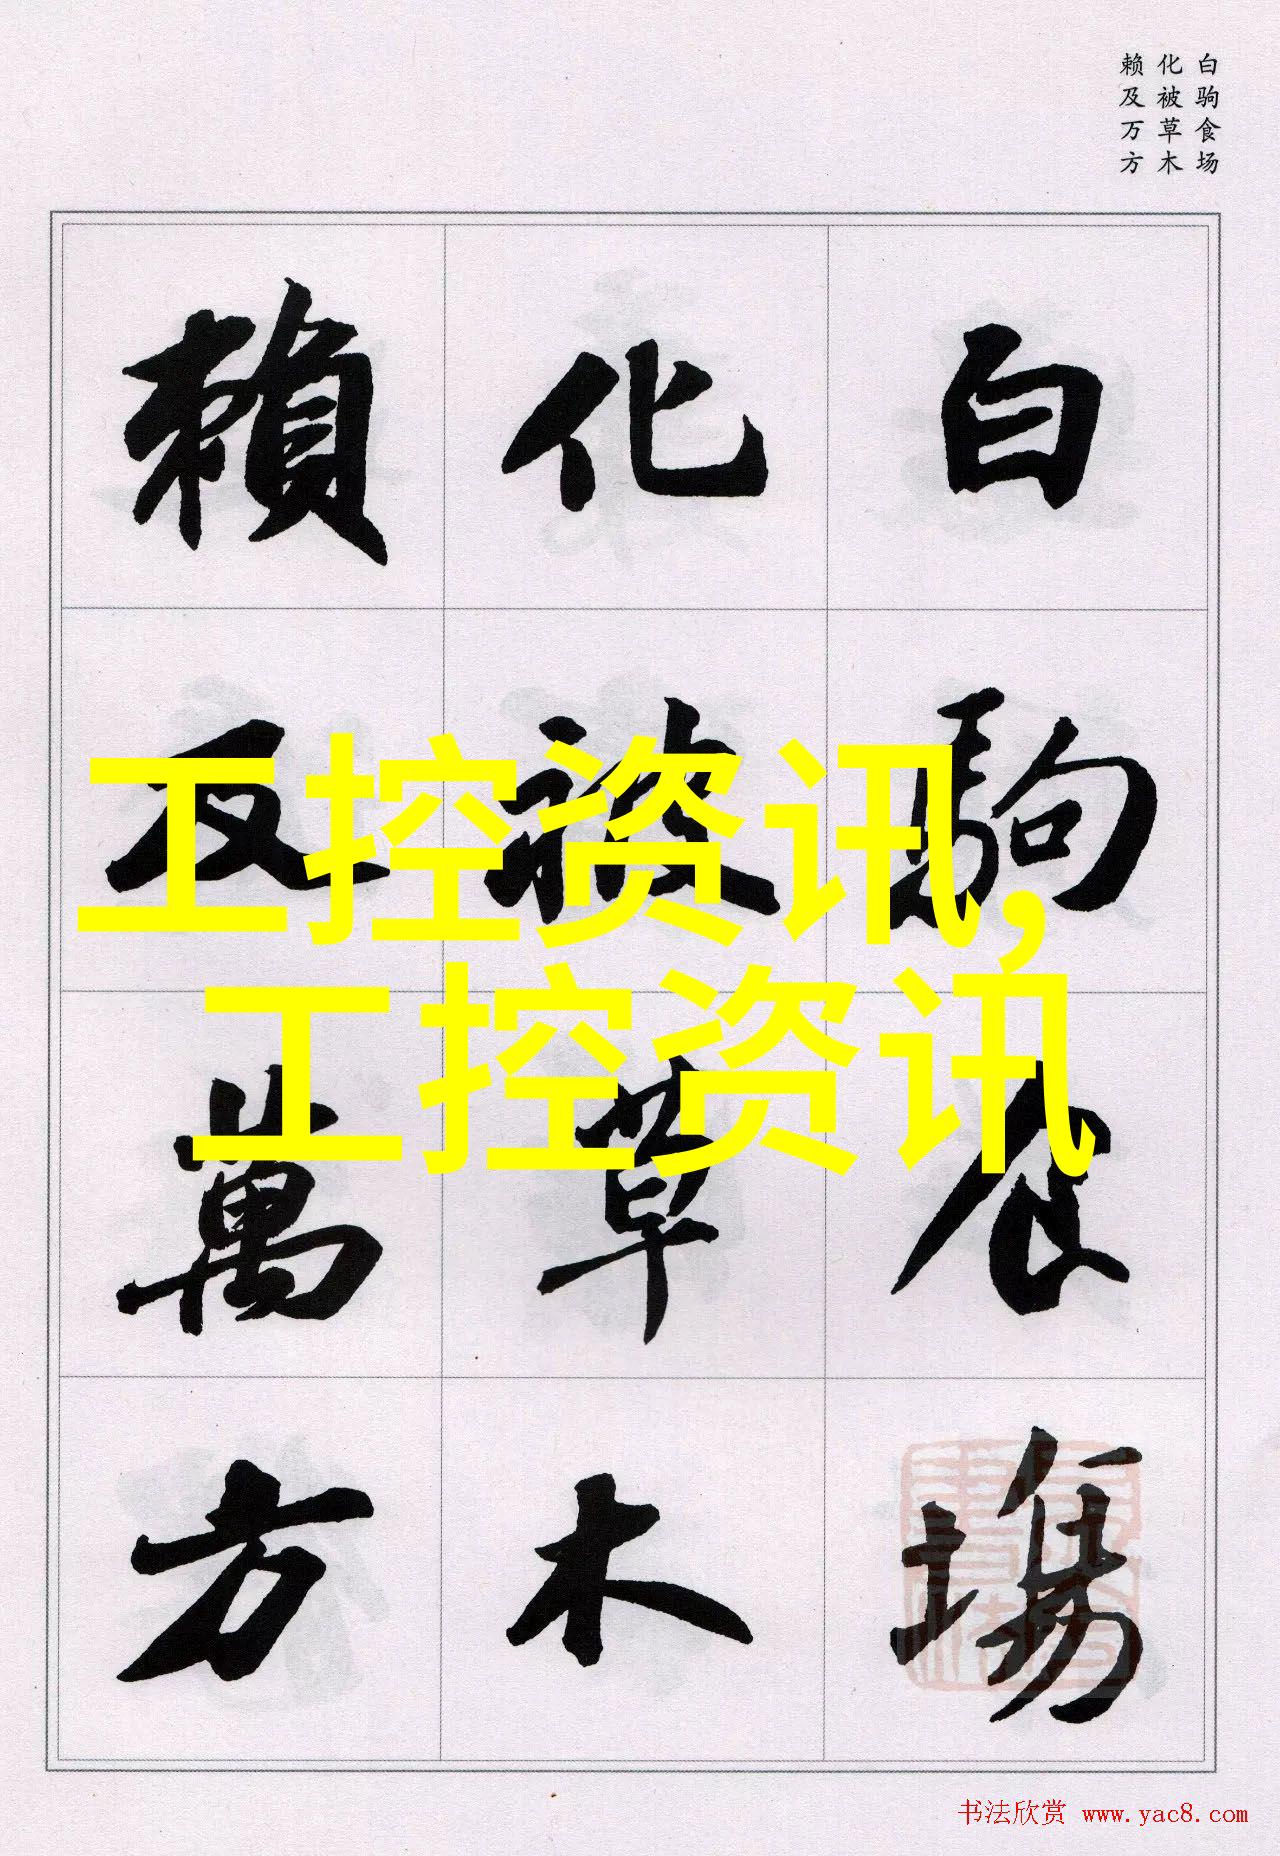 白驹食场
化被草木
赖及万方
白駒食場
化被草木
賴及萬方
工控资讯,
工控资讯
书法欣赏 www.yac8.com